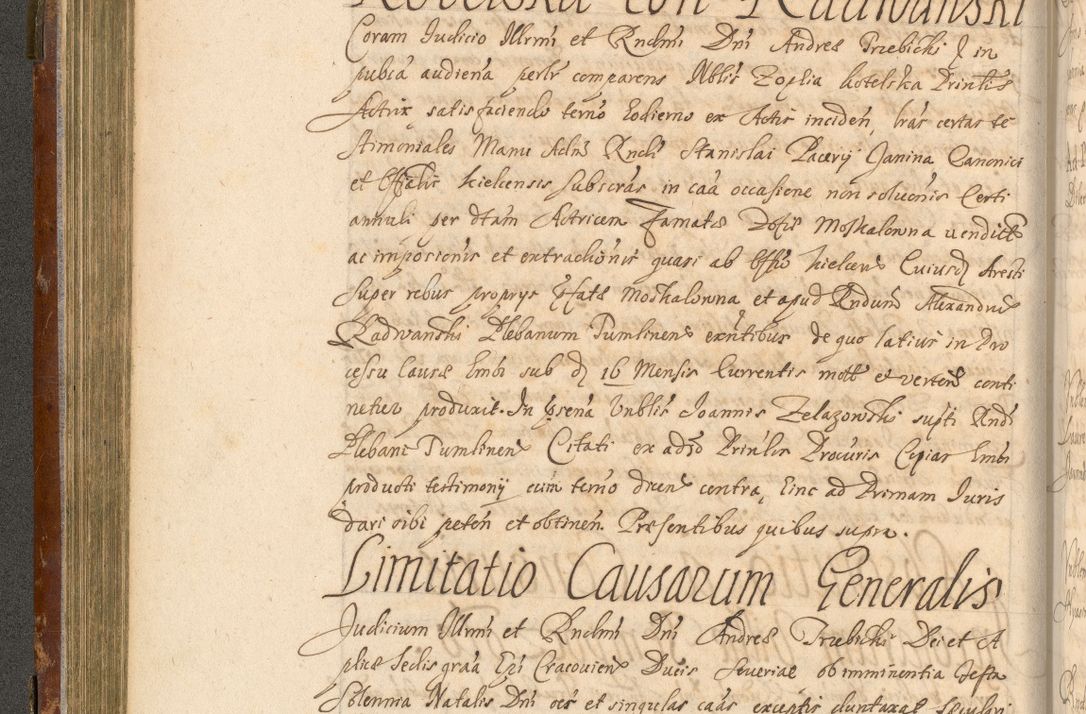 Kotelska con Radwanski
Coram Judicio Illrmi et Rndmi Dni Andreæ Trzebicki & in
pubca audiena perlr comparens Nblis Zophia Kotelska Prinlis
Actrix satisfaciendo termo hodierno ex Actis inciden, lras certas te
stimoniales Manu Adm Rndi Stanislai Pacery Janina Canonici
et Offlis Kielcensis subscras in caa occasione non soluonis Certi
annuli per dtam Actricem Famatæ Zofiæ Moskalowna vendict
ac imposionis et extractionis quasi ab Offio Kielcens Cuiusd Aresti
super rebus proprys pfatæ Moskalowna et apud Rndum Alexandrum
Radwanski Plebanum Tumlinens exntibus de quo latius in Pro
cessu Causæ Embi sub d 16 Mensis Currentis mott et vertens conti
netur produxit. In psena Vnblis Joannis Zelazowski supti Rndi
Plebani Tumlinens Citati ex adso Prinlis Procuris Copias Embi
producti testimony cum termo dicen contra, hinc ad Primam Juris
dari sibi peten et obtinen. Præsentibus quibus supra.
Limitatio Causarum Generalis
Judicium Illrmi et Rndmi Dni Andreæ Trzebicki Dei et A
plicæ Sedis graa Epi Cracoviens Ducis Severiæ ob imminentia Festa
Solemnia Natalis Dni oes et singulas caas exceptis duntaxat